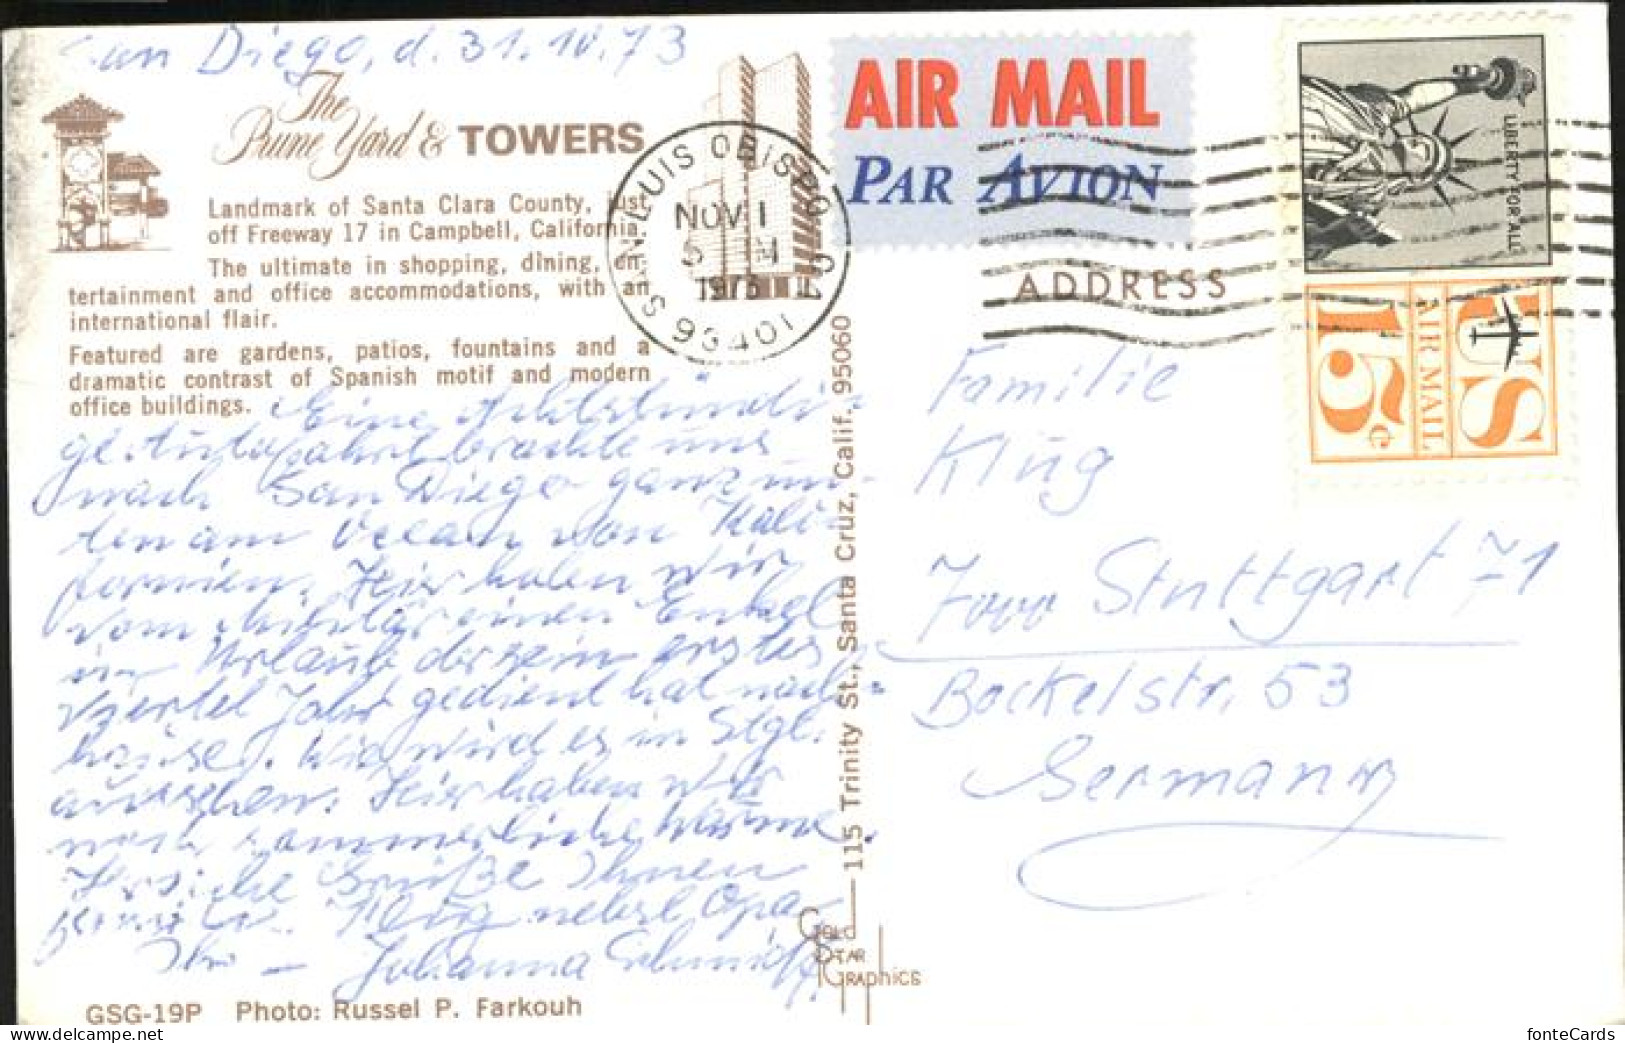 San Diego, d. 31.10.73
The
Prune Yard & TOWERS
Landmark of Santa Clara County, just
off Freeway 17 in Campbell, California.
The ultimate in shopping, dining, en-
tertainment and office accommodations, with an
international flair.
Featured are gardens, patios, fountains and a
dramatic contrast of Spanish motif and modern
office buildings.
Eine Achtstündi-
ge Autofahrt brachte uns
nach San Diego ganz un-
ten am Ocean von Kali-
fornien. Hier haben wir
vom Militär einen Enkel
in Urlaub der sein erstes
Viertel Jahr gedient hat nach-
hause. Wie wird es in Stgt.
aussehen. Hier haben wir
noch sommerliche Wärme.
Herzliche Grüße Ihnen
Klug nebst Opa
Ihre Johanna Schmidt
GSG-19P Photo: Russel P. Farkouh
SAN LUIS OBISPO CA
NOV 1
PM
1973
93401
AIR MAIL
PAR AVION
LIBERTY FOR ALL
US
AIR MAIL
15c
ADDRESS
Familie
Klug
7000 Stuttgart 71
Bockelstr. 53
Germany
115 Trinity St., Santa Cruz, Calif. 95060
Gold
Star
Graphics
fonteCards